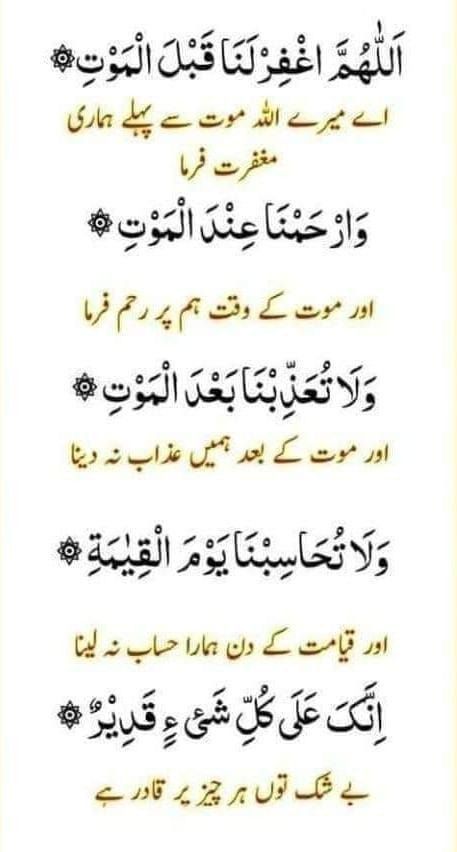 اَللّٰهُمَّ اغْفِرْلَنَا قَبْلَ الْمَوْتِ۞
اے میرے اللہ موت سے پہلے ہماری
مغفرت فرما
وَارْحَمْنَا عِنْدَ الْمَوْتِ۞
اور موت کے وقت ہم پر رحم فرما
وَلَا تُعَذِّبْنَا بَعْدَ الْمَوْتِ۞
اور موت کے بعد ہمیں عذاب نہ دینا
وَلَا تُحَاسِبْنَا يَوْمَ الْقِيٰمَةِ۞
اور قیامت کے دن ہمارا حساب نہ لینا
اِنَّکَ عَلَی کُلِّ شَیْءٍ قَدِیْرٌ۞
بے شک توں ہر چیز پر قادر ہے